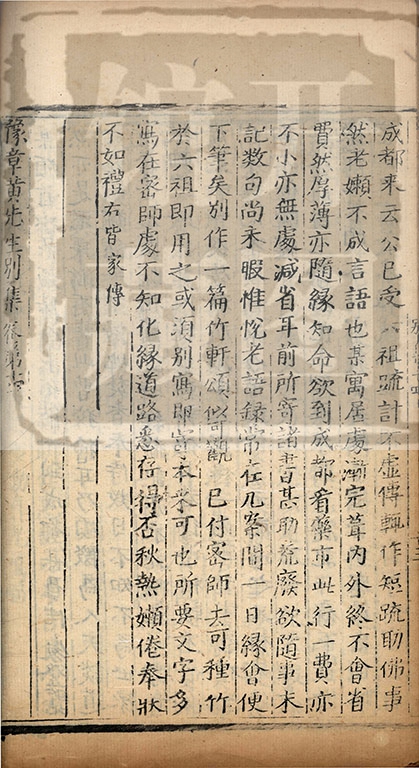 成都来云公已受六祖疏計不虚傳輒作短疏助佛事
然老嬾不成言語也某寓居處漸完葺内外終不會省
費然厚薄亦隨緣知命欲到成都看藥市此行一費亦
不小亦無處減省耳前所寄諸書甚助荒廢欲隨事未
記数句尚未暇惟悅老語録常在几案間一日緣會便
下筆矣别作一篇竹軒頌 已付密師去可種竹
於六祖即用之或須别寫即寄本来可也所要文字多
寫在密師處不知化緣道路悉存得否秋熱嬾倦奉狀
不如禮右皆家傳
豫章黄先生别集卷第